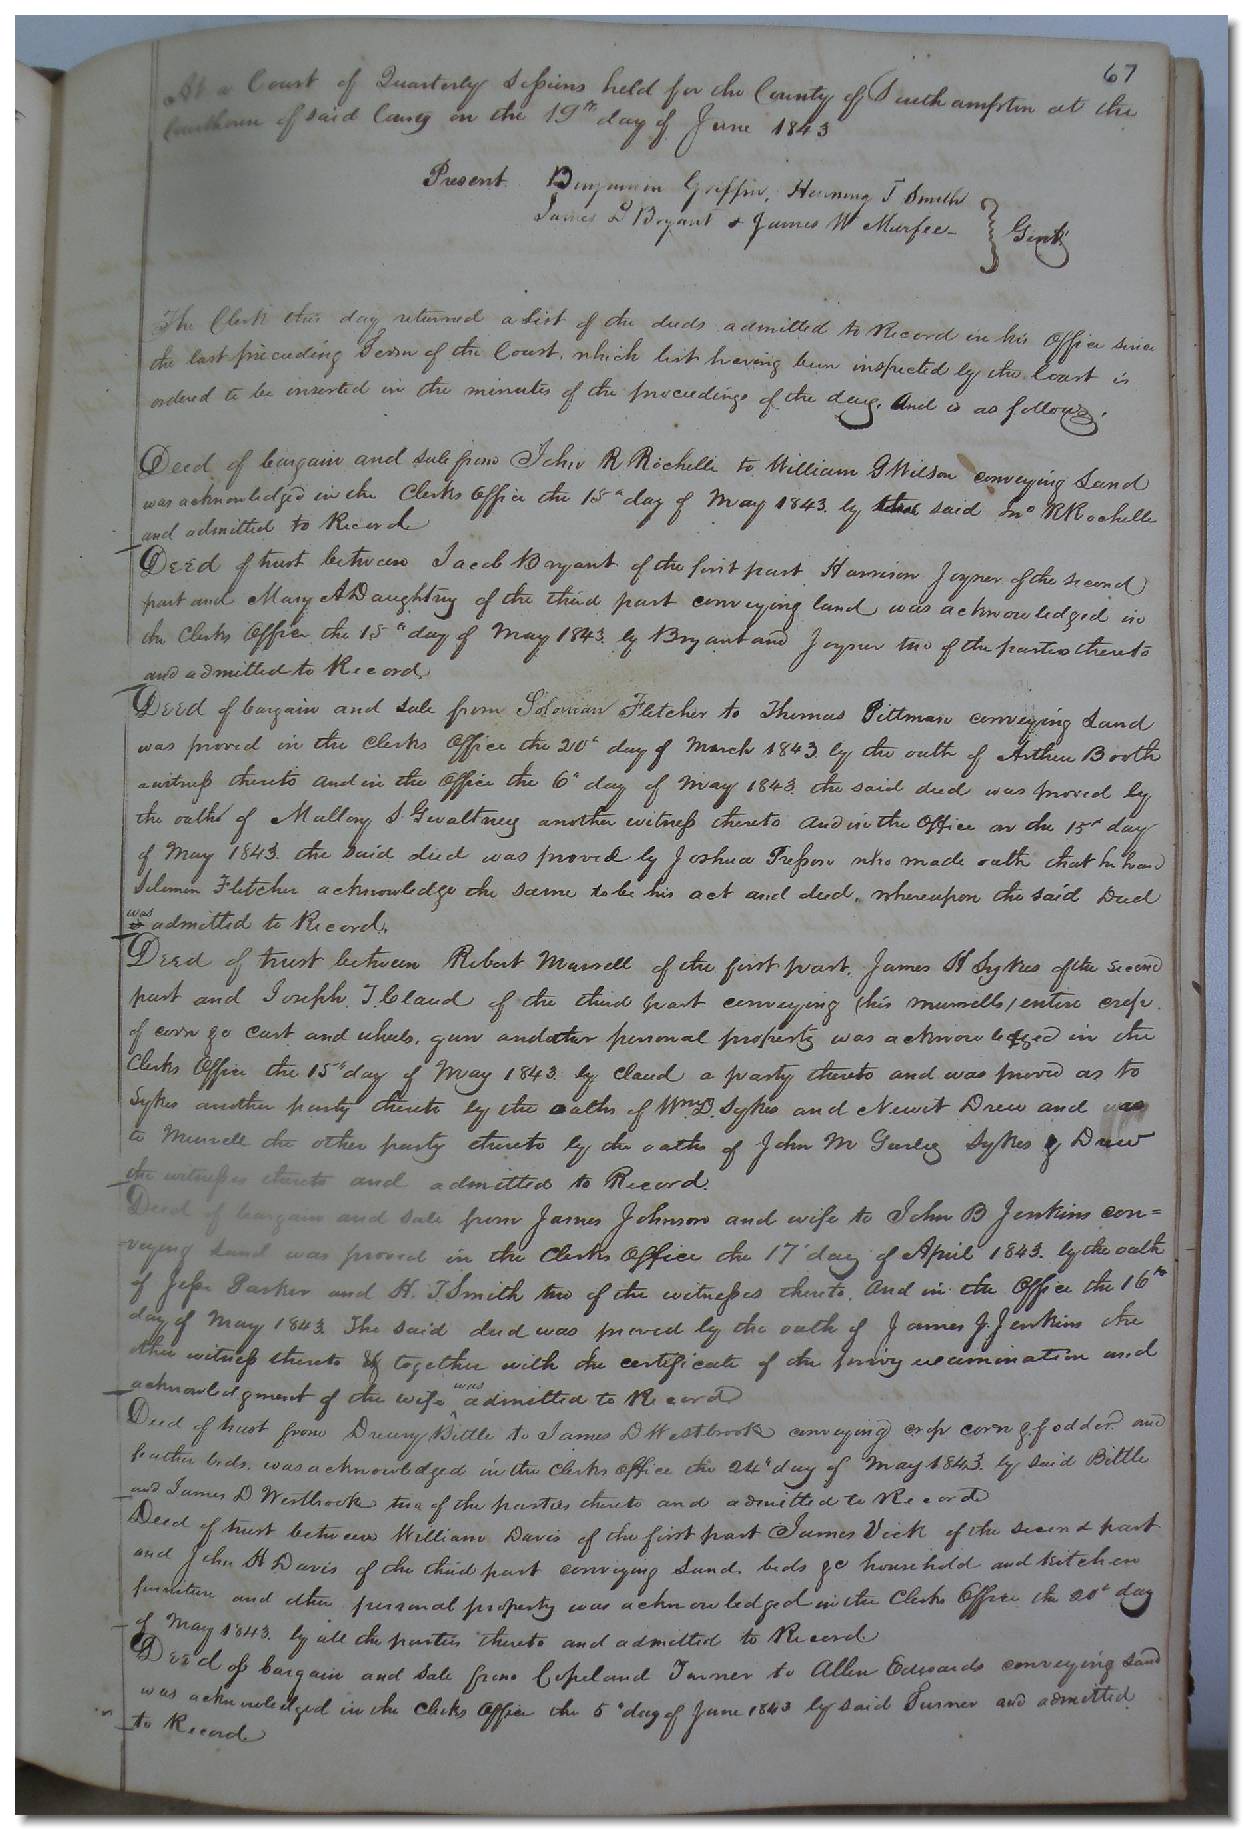 67
At a Court of Quarterly Sessions held for the County of Southampton at the
Courthouse of said County on the 19th day of June 1843
Present Benjamin Griffin, Henning T Smith
James D Bryant & James W Murfee
Gent
The Clerk this day returned a List of the deeds admitted to Record in his Office since
the last preceeding Term of the Court, which list having been inspected by the Court is
ordered to be inserted in the minutes of the proceedings of the day. And is as follows.
Deed of bargain and sale from John R Rochelle to William G Wilson conveying Land
was acknowledged in the Clerks Office the 15th day of May 1843 by said Jno R Rochelle
and admitted to Record
Deed of trust between Jacob Bryant of the first part Harrison Joyner of the second
part and Mary A Daughtry of the third part conveying land was acknowledged in
the Clerks Office the 15th day of May 1843 by Bryant and Joyner two of the parties thereto
and admitted to Record.
Deed of bargain and sale from Solomon Fletcher to Thomas Pittman conveying Land
was proved in the Clerks Office the 20th day of March 1843 by the oath of Arthur Booth
a witness thereto and in the Office the 6th day of May 1843 the said deed was proved by
the oath of Mallory S Gwaltney another witness thereto And in the Office on the 15th day
of May 1843 the said deed was proved by Joshua Presson who made oath that he heard
Solomon Fletcher acknowledge the same to be his act and deed, whereupon the said Deed
was admitted to Record.
Deed of trust between Robert Murrell of the first part, James H Sykes of the second
part and Joseph T. Claud of the third part conveying (his murrells) entire crop
of corn go cart and wheels, gun and other personal property was acknowledged in the
Clerks Office the 15th day of May 1843 by Claud a party thereto and was proved as to
Sykes another party thereto by the oaths of Wm D. Sykes and Newit Drew and as
to Murrell the other party thereto by the oaths of John M Gurley Sykes & Drew
the witnesses thereto and admitted to Record.
Deed of bargain and sale from James Johnson and wife to John B Jenkins con=
veying Land was proved in the Clerks Office the 17th day of April 1843. by the oath
of Jesse Parker and H. T. Smith two of the witnesses thereto, And in the Office the 16th
day of May 1843 The said deed was proved by the oath of James J. Jenkins the
other witness thereto & together with the certificate of the privy examination and
acknowledgment of the wife was admitted to Record
Deed of trust from Drewry Bittle to James D Westbrook conveying crop corn & fodder and
feather beds. was acknowledged in the Clerks office the 24th day of May 1843 by said Bittle
and James D Westbrook two of the parties thereto and admitted to Record
Deed of trust between William Davis of the first part James Vick of the second part
and John H Davis of the third part conveying Land. beds &c household and Kitchen
furniture and other personal property was acknowledged in the Clerks Office the 20th day
of May 1843. by all the parties thereto and admitted to Record
Deed of bargain and sale from Copeland Turner to Allen Edwards conveying Land
was acknowledged in the Clerks Office the 5th day of June 1843 by said Turner and admitted
to Record